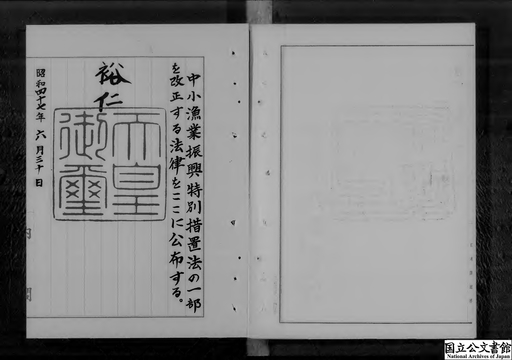 中小漁業振興特別措置法の一部
を改正する法律をここに公布する。
裕仁
天皇
御璽
昭和四十七年 六月三十日
国立公文書館
National Archives of Japan